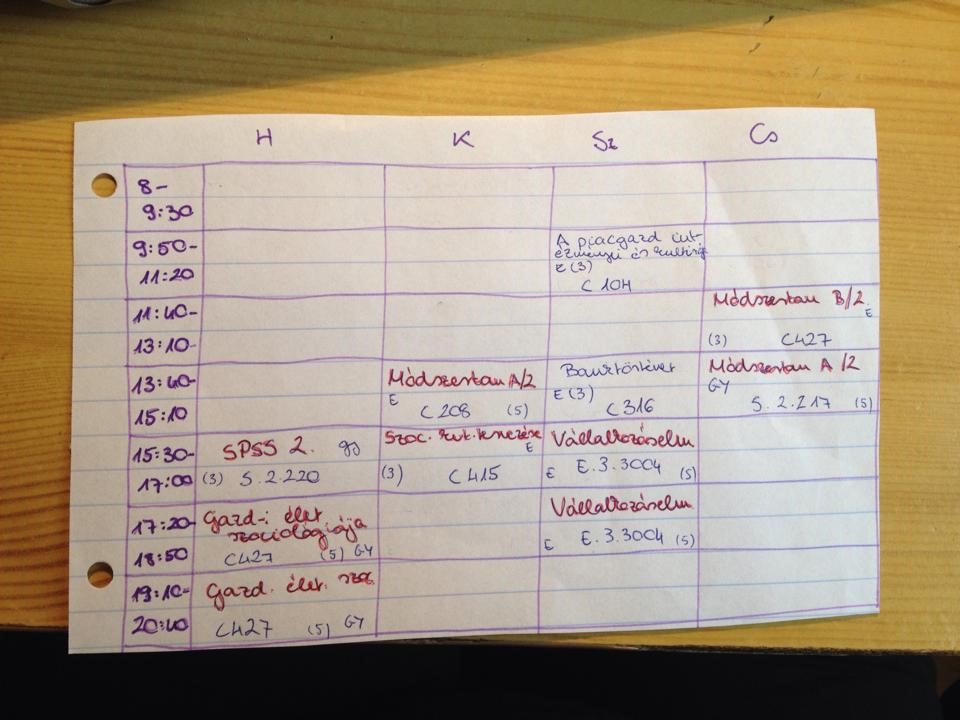 H K Sz Cs
8-
9:30
9:50-
11:20
A piacgard int.
ézményei és
E (3)
C 104
11:40-
13:10
Módszertan B/2
E
(3) C427
13:40-
15:10
Módszertan A/2
E C 208 (5)
E (3)
C 316
Módszertan A /2
GY
S. 2. 217 (5)
15:30-
17:00
SPSS 2. gy
(3) S. 2. 220
Szoc. kut. tervezése
E
(3) C 415
Vállalkozáselm
E E. 3. 3004 (5)
17:20-
18:50
Gazd-i élet
szociológiája
C427 (5) GY
Vállalkozáselm
E E. 3. 3004 (5)
19:10-
20:40
Gazd. élet. szoc.
C427 (5) GY